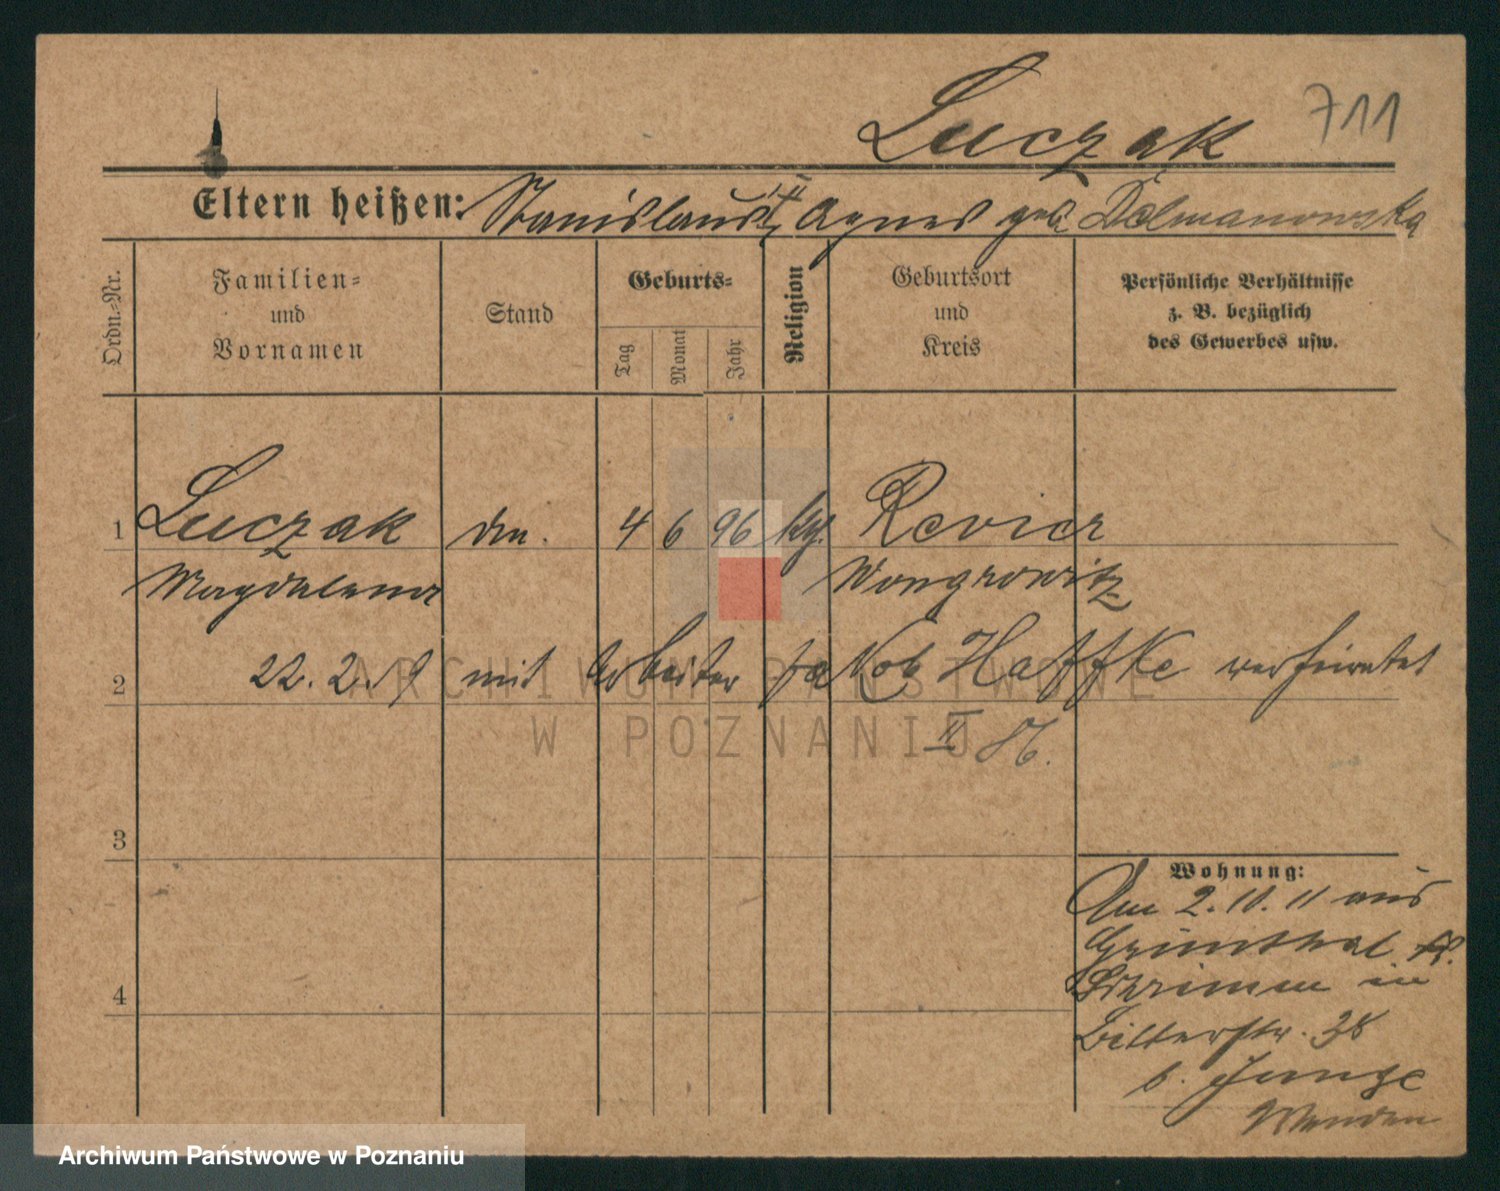 711
Luczak
Eltern heißen: Stanislaus u. Agnes geb. Dolmanowska
Ordn.-Nr.
Familien-
und
Vornamen
Stand
Geburts-
Tag
Monat
Jahr
Religion
Geburtsort
und
Kreis
Persönliche Verhältnisse
z. B. bezüglich
des Gewerbes usw.
1 Luczak 4 6 96 Revier
Magdalena Wongrowitz
2 22.2.19 mit Arbeiter Jakob Haffke verheiratet
II
3
4
Wohnung:
Am 2.11.11 aus
Grünthal
in
38
b. Junge
ARCHIWUM PAŃSTWOWE
W POZNANIU
Archiwum Państwowe w Poznaniu